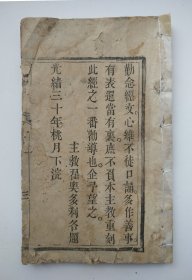 勤念經文心維不徒口誦多作善事
有表還當有裏庶不負本主教重刻
此經之一番勸導也企予望之
主教翟奧多利各題
光緒三十年桃月下浣